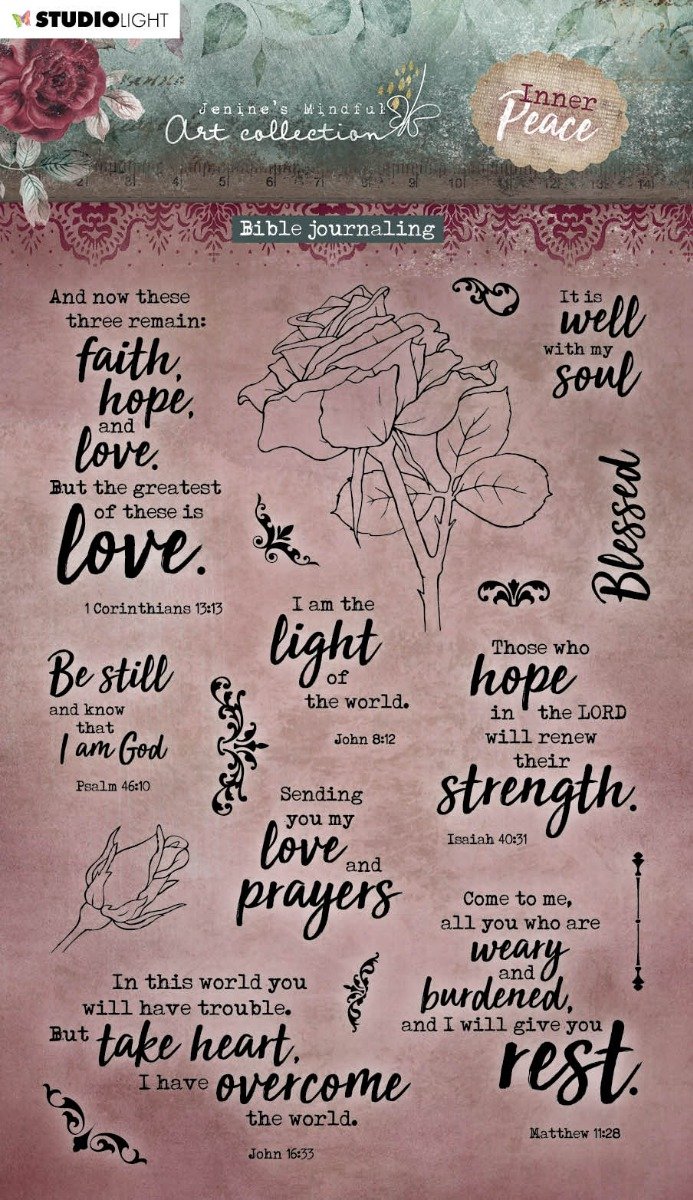 STUDIOLIGHT
Jenine's Mindful
Art collection
Inner
Peace
2 3 4 5 6 7 8 9 10 11 12 13 14
Bible journaling
And now these
three remain:
faith,
hope,
and
love.
But the greatest
of these is
love.
1 Corinthians 13:13
It is
well
with my
soul
Blessed
I am the
light
of
the world.
John 8:12
Be still
and know
that
I am God
Psalm 46:10
Those who
hope
in the LORD
will renew
their
strength.
Isaiah 40:31
Sending
you my
love
and
prayers
Come to me,
all you who are
weary
and
burdened,
and I will give you
rest.
Matthew 11:28
In this world you
will have trouble.
But take heart,
I have overcome
the world.
John 16:33